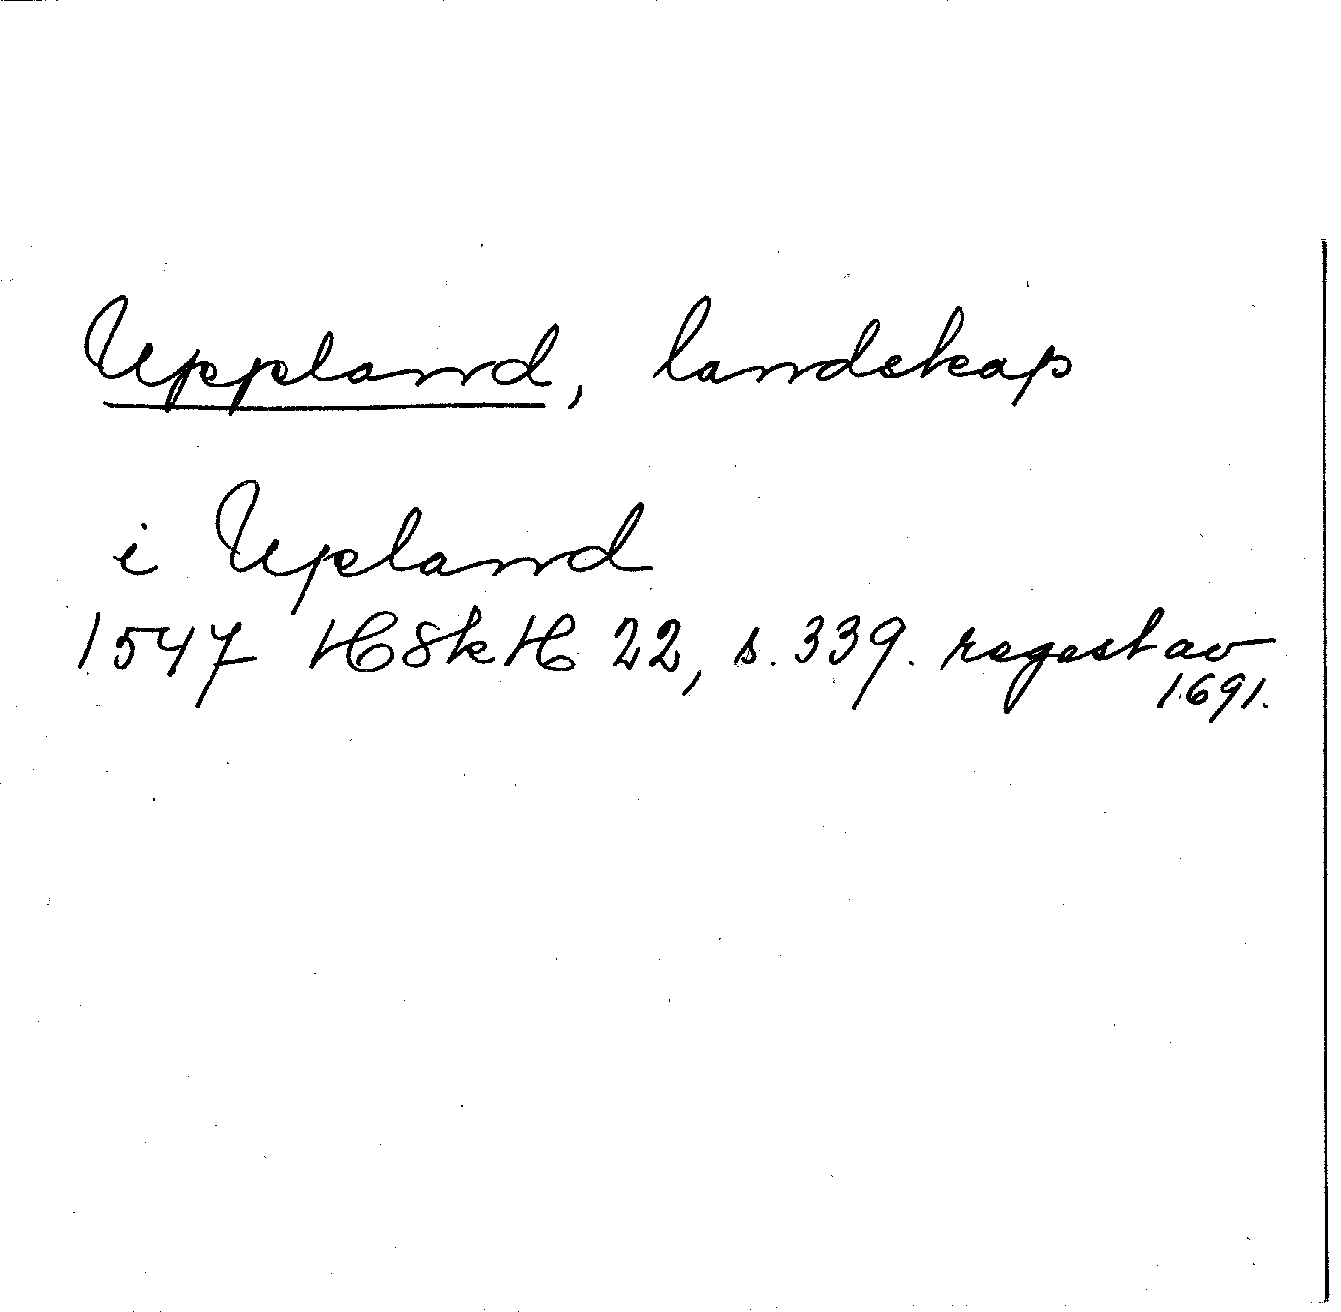 Uppland, landskap
i Upland
1547 HSkH 22, s. 339. regest av
1691.